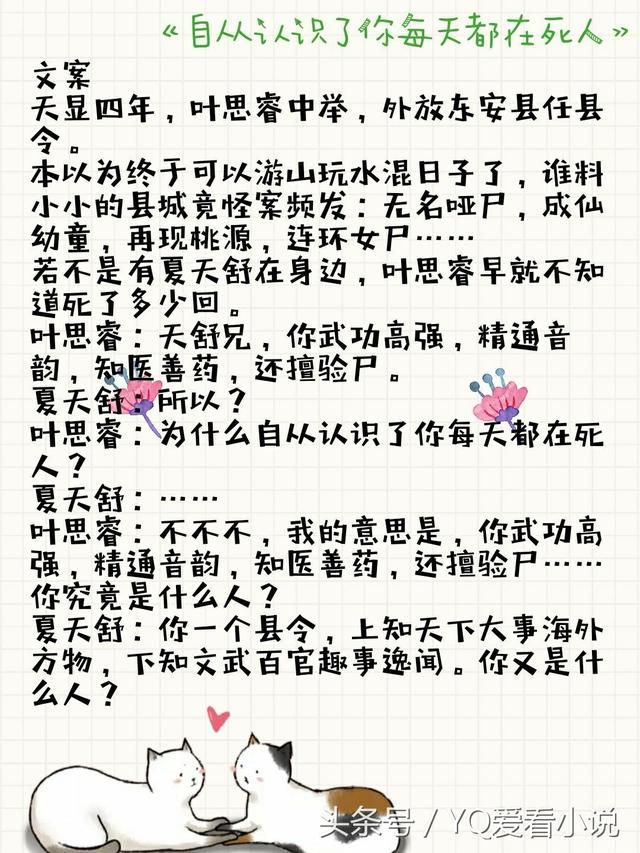 《自从认识了你每天都在死人》
文案
天显四年，叶思睿中举，外放东安县任县
令。
本以为终于可以游山玩水混日子了，谁料
小小的县城竟怪案频发：无名哑尸，成仙
幼童，再现桃源，连环女尸……
若不是有夏天舒在身边，叶思睿早就不知
道死了多少回。
叶思睿：天舒兄，你武功高强，精通音
韵，知医善药，还擅验尸。
夏天舒：所以？
叶思睿：为什么自从认识了你每天都在死
人？
夏天舒：……
叶思睿：不不不，我的意思是，你武功高
强，精通音韵，知医善药，还擅验尸……
你究竟是什么人？
夏天舒：你一个县令，上知天下大事海外
方物，下知文武百官趣事逸闻。你又是什
么人？
头条号 / YQ爱看小说